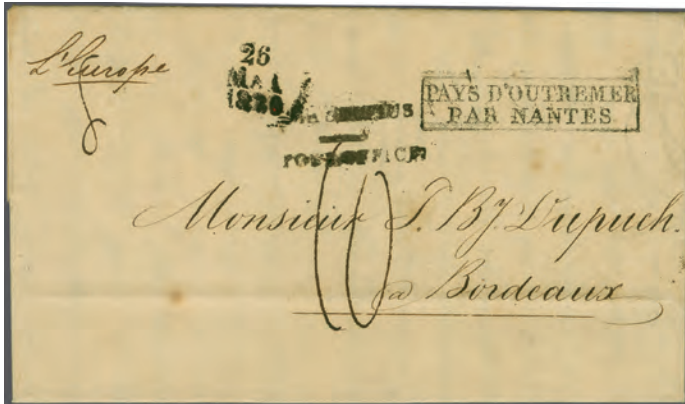 L'Europe
26
MAI
POST OFFICE
PAYS D'OUTREMER
PAR NANTES
Monsieur
Dupuch.
a Bordeaux